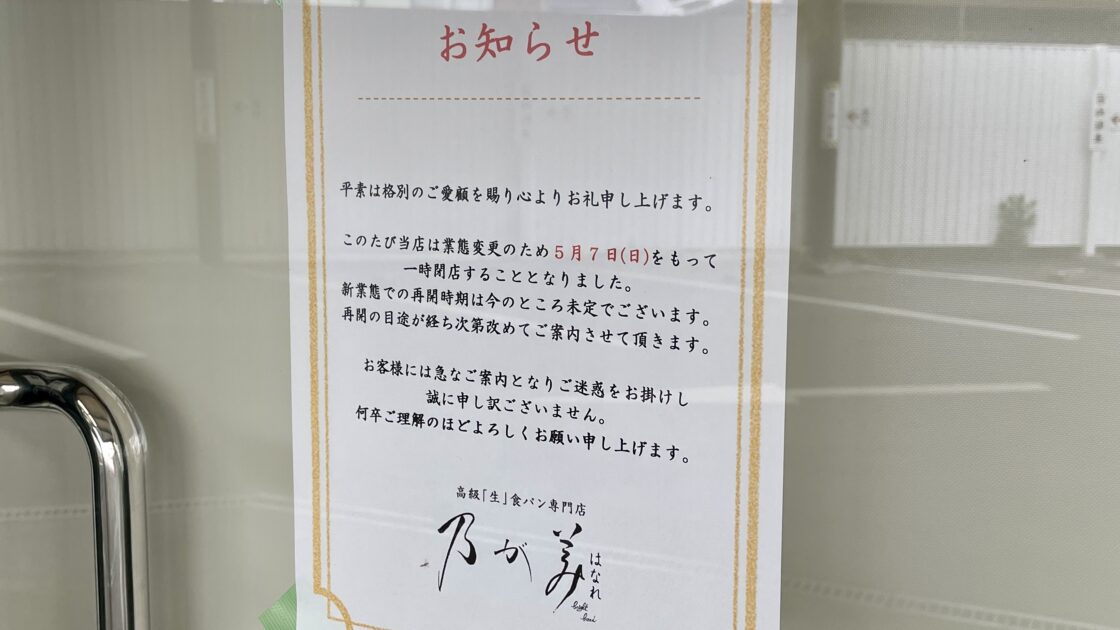 お知らせ
平素は格別のご愛顧を賜り心よりお礼申し上げます。
このたび当店は業態変更のため5月7日(日)をもって
一時閉店することとなりました。
新業態での再開時期は今のところ未定でございます。
再開の目途が経ち次第改めてご案内させて頂きます。
お客様には急なご案内となりご迷惑をお掛けし
誠に申し訳ございません。
何卒ご理解のほどよろしくお願い申し上げます。
高級「生」食パン専門店
乃が美
はなれ